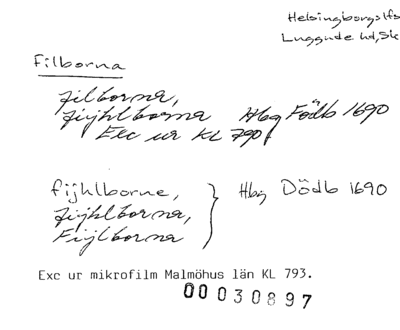 Helsingborgs lfs
Luggude hd, Sk
Filborna
Filborna,
Fijhlborna Hbg Födb 1690
Exc ur KL 790
fijhlborne, Hbg Dödb 1690
Fijhlborna,
Fijlborna
Exc ur mikrofilm Malmöhus län KL 793.
00030897